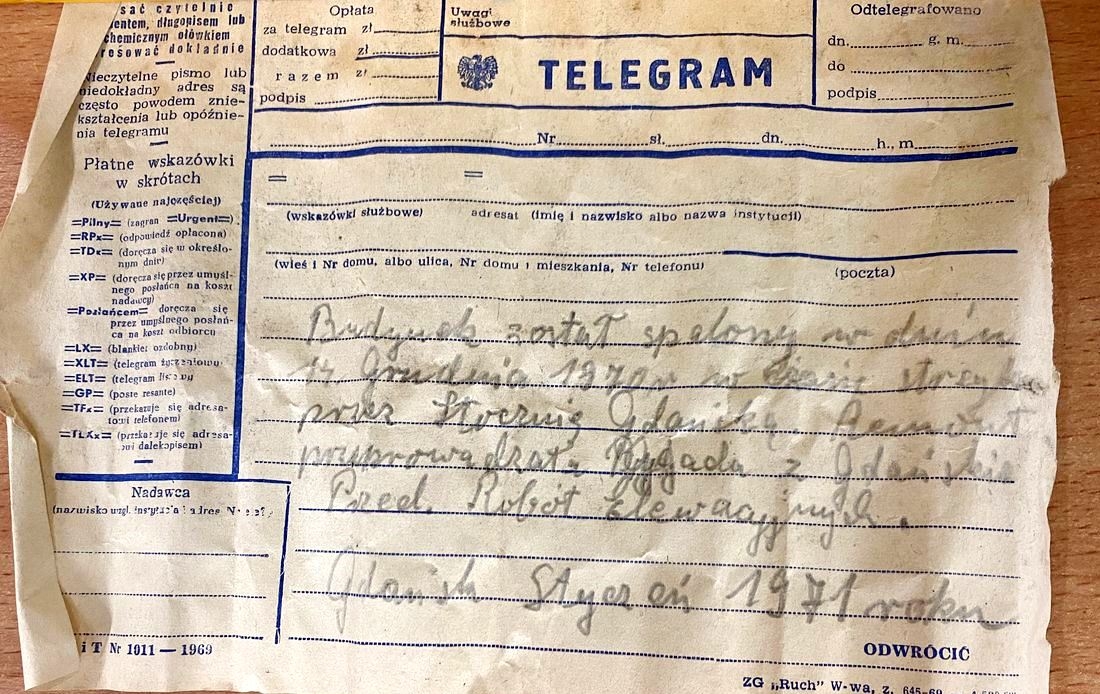 sać czytelnie
entem, długopisem lub
chemicznym ołówkiem
resować dokładnie
Nieczytelne pismo lub
niedokładny adres są
często powodem znie-
kształcenia lub opóźnie-
nia telegramu
Płatne wskazówki
w skrótach
(Używane najczęściej)
=Pilny= (zagran =Urgent=)
=RPx= (odpowiedź opłacona)
=TDx= (doręcza się w określo-
nym dniu)
=XP= (doręcza się przez umyśl-
nego posłańca na koszt
nadawcy)
=Posłańcem= doręcza się
przez umyślnego posłań-
ca na koszt odbiorcu
=LX= (blankiet ozdobny)
=XLT= (telegram życzeniowy
=ELT= (telegram listowy
=GP= (poste resante)
=TFx= (przekazuje się adresa-
towi telefonem)
=TLXx= (przekazuje się adresa-
towi dalekopisem)
Nadawca
(nazwisko wzgl. instytucja i adres
i T Nr 1011 — 1969
Opłata
za telegram zł
dodatkowa zł
razem zł
podpis
Uwagi
służbowe
TELEGRAM
Odtelegrafowano
dn. g. m.
do
podpis
Nr sł. dn. h., m
= =
(wskazówki służbowe) adresat (imię i nazwisko albo nazwa instytucji)
(wieś i Nr domu, albo ulica, Nr domu i mieszkania, Nr telefonu) (poczta)
Budynek został spalony w dniu
Grudnia 1970r w czasie
przez Stocznię Gdańską. Remont
przyprowadzała Brygada z Gdańskie
Przed. Robót Elewacyjnych.
Gdańsk Styczeń 1971 roku
ODWRÓCIĆ
ZG „Ruch” W-wa, z. 645-69